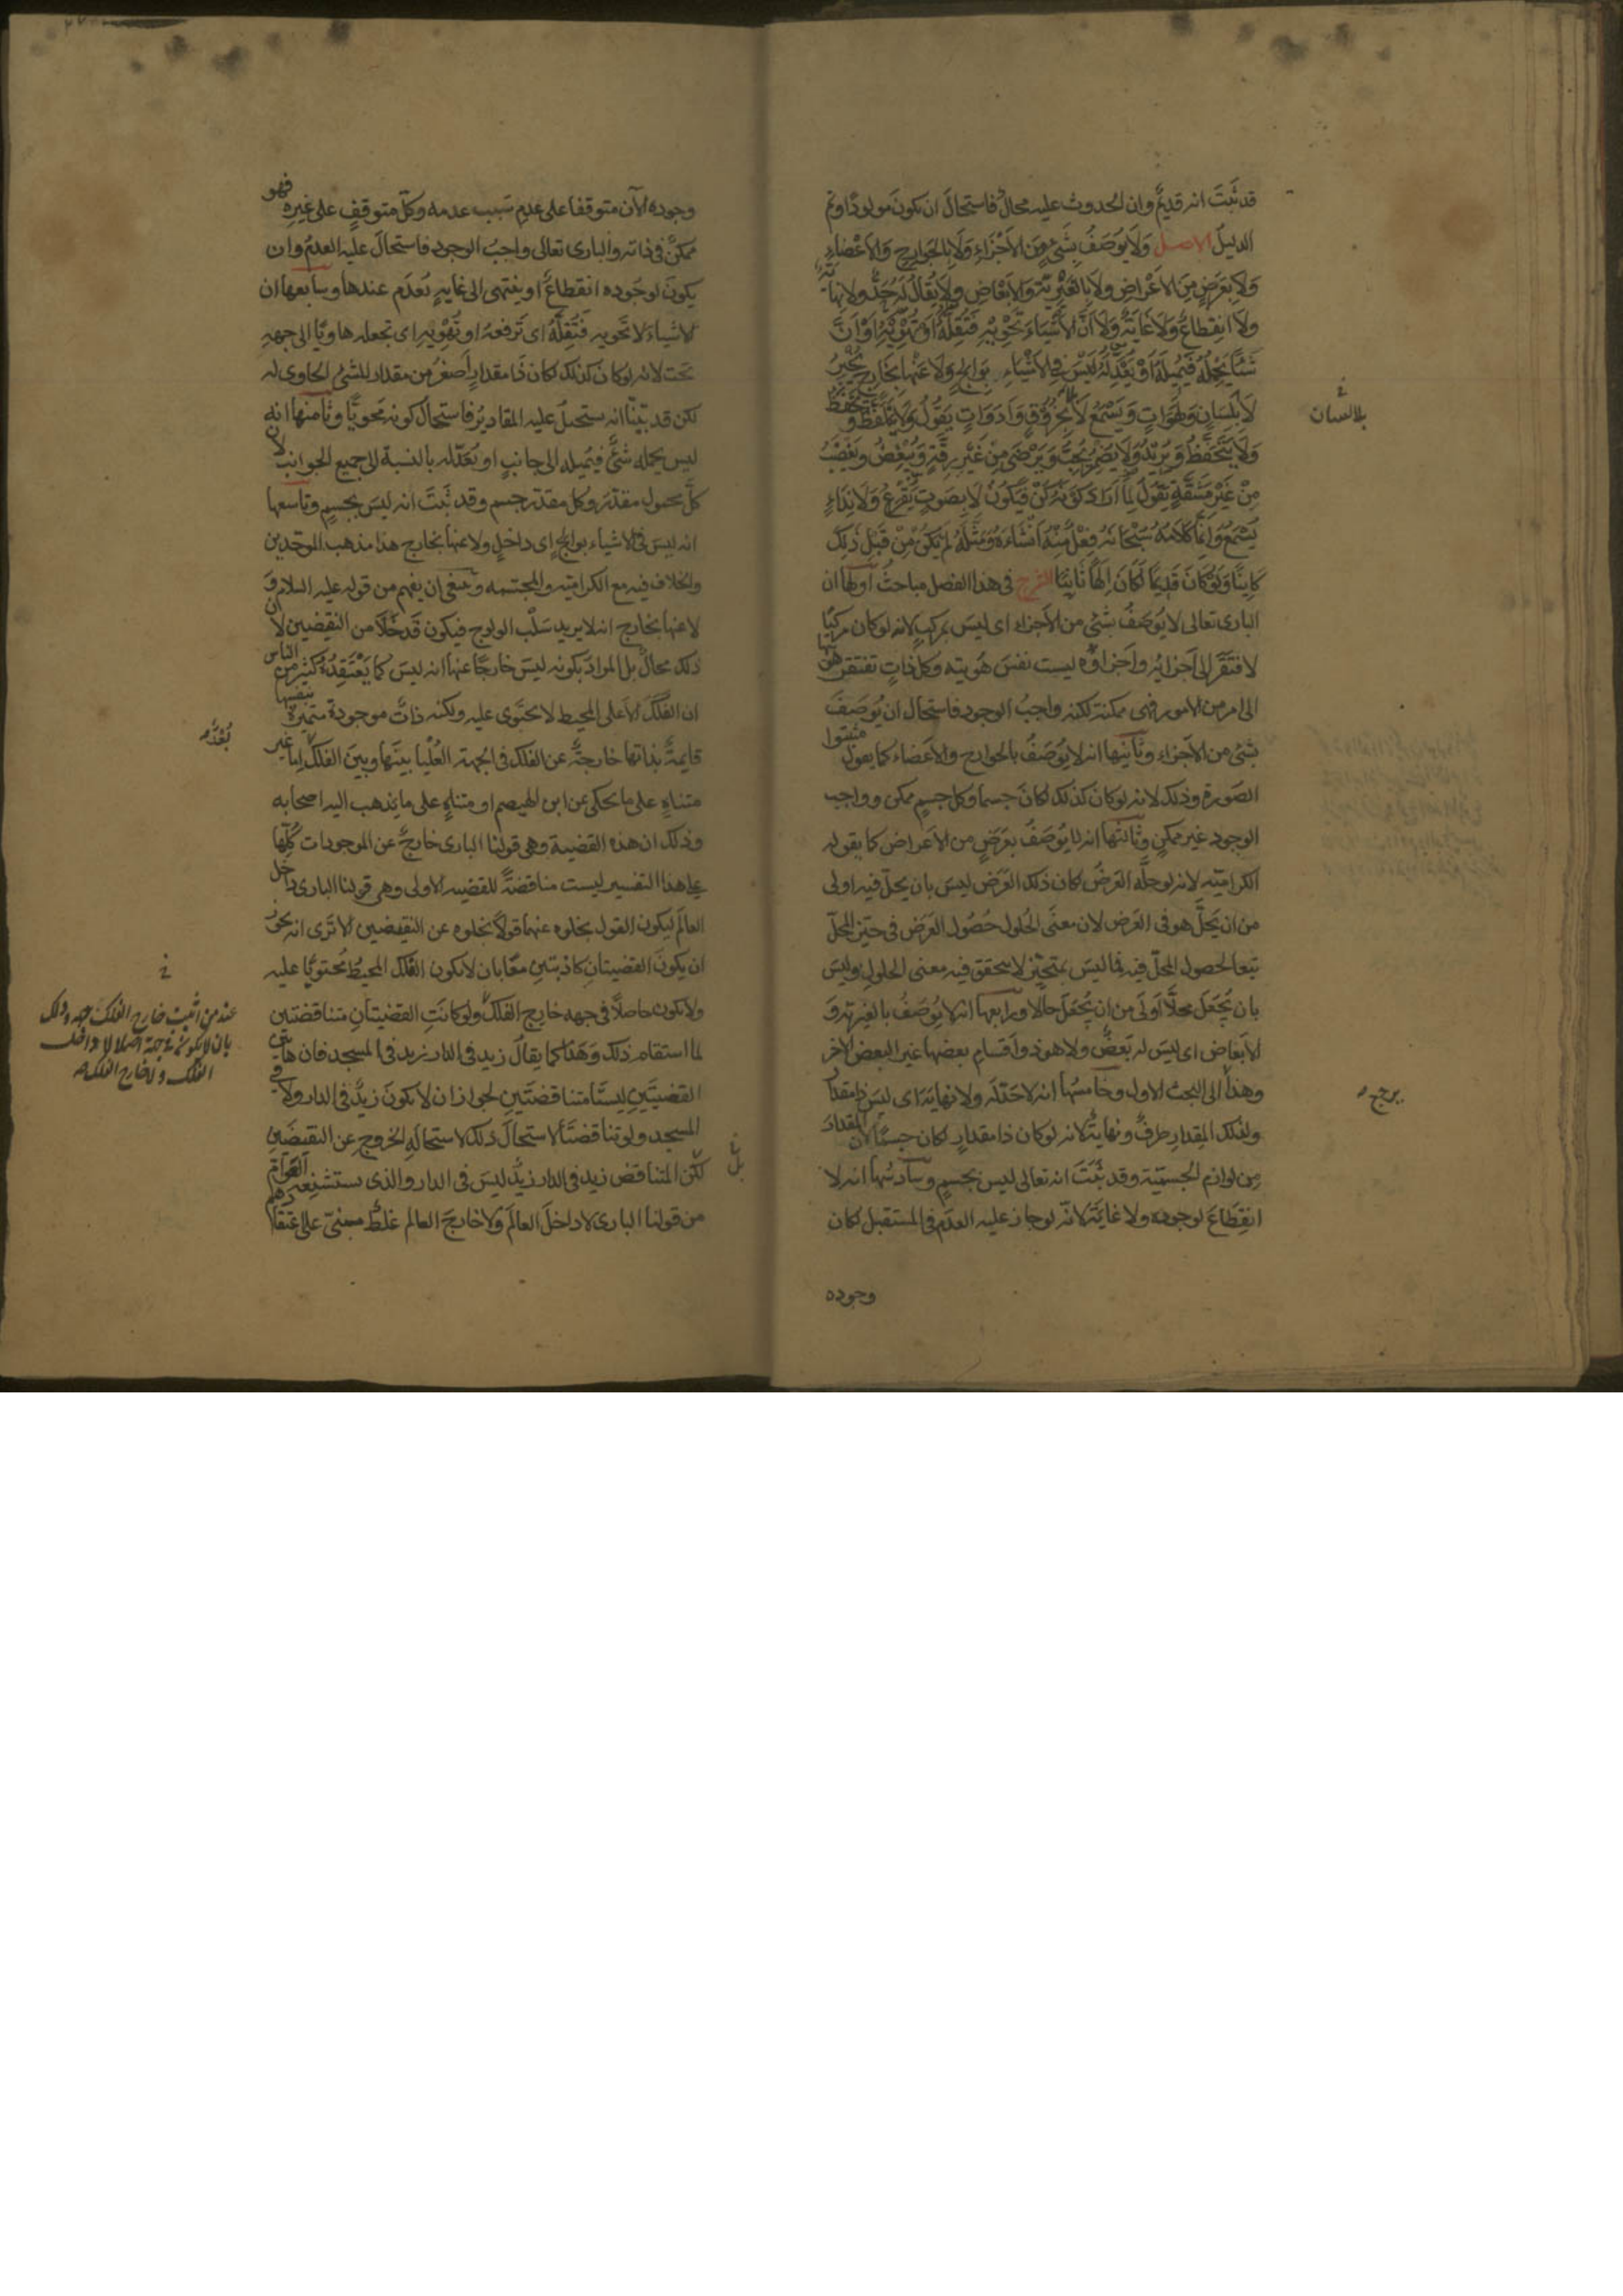 قد ثَبَتَ انه قديمٌ وان الحدوث عليه محالٌ فاستحالَ ان يكونَ مولودًا وتم
الدليل الاصل وَلَا يُوصَفُ بِشَيْءٍ مِنَ الأَجْزَاءِ وَلَا بِالجَوارِحِ وَالأَعْضاءِ
وَلَا بِعَرَضٍ مِنَ الأَعْرَاضِ ولا بِالغَيْرِيَّةِ وَالأَبْعَاضِ وَلَا يُقَالُ لَهُ حَدٌّ ولا نِهايَة
ولَا انْقِطاعٌ وَلَا غَايَةٌ وَلَا أَنَّ الأَشْيَاءَ تَحْوِيْهِ فَتُقِلَّهُ أَوْ تُهْوِيَهُ أَوْ أَنَّ
شَيْئًا يَحْمِلُهُ فَيُمِيلَهُ أَوْ يُعَدِّلَهُ لَيْسَ فِي الأَشْيَاءِ بِوَالِجٍ وَلَا عَنْهَا بِخَارِجٍ يُخْبِرُ
لَا بِلِسَانٍ وَلَهَوَاتٍ وَيَسْمَعُ لَا بِخُرُوقٍ وَأَدَوَاتٍ يَقُولُ وَلَا يَلْفِظُ وَيَحْفَظُ
وَلَا يَتَحَفَّظُ وَيُرِيْدُ وَلَا يُضْمِرُ يُحِبُّ وَيَرْضَى مِنْ غَيْرِ رِقَّةٍ وَيُبْغِضُ ويَغْضَبُ
مِنْ غَيْرِ مَشَقَّةٍ يَقُولُ لِمَا أَرَادَ كَوْنَهُ كُنْ فَيَكُونُ لَا بِصَوتٍ يَقْرَعُ وَلَا نِدَاءٍ
يُسْمَعُ وَإِنَّمَا كَلَامُهُ سُبْحَانَهُ فِعْلٌ مِنْهُ أَنْشَأَهُ وَمَثَّلَهُ لَمْ يَكُنْ مِنْ قَبْلِ ذَلِكَ
كَائِنًا وَلَوْ كَانَ قَدِيمًا لَكَانَ إِلَهًا ثَانِيًا الشرح في هذا الفصل مباحثُ أولها ان
البارى تعالى لا يُوصَفُ بشئ من الأجزاء اى ليسَ بمركبٍ لانه لو كان مركبًا
لافتقَرَ الى أجزائِه وأجزاؤه ليست نفسَ هُويته وكل ذاتٍ تفتقر هويتها
الى امر من الأمور فهى ممكنة لكنه واجبُ الوجود فاستحال ان يُوصَفَ
بشئ من الأجزاء وثانيها انه لا يُوصَفُ بالجوارح والأعضاء كما يقول مثبتوا
الصورة وذلك لانه لو كان كذلك لكانَ جسمًا وكل جسمٍ ممكن وواجب
الوجود غير ممكنٍ وثالثها انه لا يُوصَفُ بعَرَضٍ من الأعراض كما يقوله
الكرامية لانه لو حلَّه العَرضُ لكان ذلك العَرَض ليسَ بان يحلّ فيه اولى
من ان يَحلَّ هو فى العَرض لان معنَى الحُلول حُصُول العَرَض فى حيّز المحلّ
تبعًا لحصول المحلّ فيه فما ليسَ بمتحيّز لا يتحقق فيه معنى الحلول وليسَ
بان يُجعَل محلًّا أولَى من ان يُجعَل حالًّا ورابعها انه لا يُوصَفُ بالغيرية و
الأبعَاض اى ليسَ له بَعضٌ ولا هو ذو اَقسامٍ بعضها غير البعض الآخر
وهذا الى البحث الاول وخامسُها انه لا حَدّ له ولا نهايةَ اى ليسَ ذا مقدارٍ
ولذلك المِقدارِ طرفٌ ونهايةٌ لانه لو كان ذا مقدارٍ لكان جسمًا لان المقدارَ
مِن لوازم الجسميّة وقد ثبَتَ انه تعالى ليس بجسمٍ وسادسُها انه لا
انقِطاعَ لوجوده ولا غايَةَ لانّه لو جاز عليه العدَم فى المستقبل لكان
وجوده
بلالسان
يرجع
وجوده الآن متوقفا على عدم سَبب عدمه وكلّ متوقفٍ على غيرِه فهو
ممكنٌ فى ذاته والبارى تعالى واجبُ الوجود فاستحالَ عليه العدمُ وان
يكونَ لوجُوده انقطاعٌ او ينتهى الى غايةٍ يُعدَم عندها وسابعها ان
الاشياءَ لا تَحويه فتُقِلَّهُ اى تَرفعهُ او تُهْوِيه اى تجعله هاويًا الى جهه
تحت لانه لو كان كذلك لكان ذا مقدارٍ أصغرُ من مقدار الشئ الحاوى له
لكن قد بيّنّا انه يستحيلُ عليه المقادير فاستحالَ كونه محويًّا وثامنها انه
ليس يحمله شئٌ فيُميله الى جانبٍ او يُعَدّله بالنسبة الى جميع الجوانب لان
كلَّ محمولٍ مقدّر وكل مقدّر جسم وقد ثبَتَ انه ليسَ بجسمٍ وتاسعها
انه ليسَ فى الاشياء بوالج اى داخلٍ ولا عنها بخارج هذا مذهب الموحّدين
والخلاف فيه مع الكرامية والمجسّمه وينبغى ان يفهم من قوله عليه السلام و
لا عنها بخارج انه لا يريد سَلْب الولوج فيكون قَد خَلَا من النقيضين لان
ذلك محالٌ بل المرادُ بكونه ليسَ خارجًا عنها انه ليسَ كما يَعْتَقِدُهُ كثير من الناس
ان الفَلَكَ الأعلى المحيط لا يحتَوى عليه ولكنه ذاتٌ موجودة متميزة بنفسِها
قايمةٌ بذاتها خارجةٌ عن الفلك فى الجهة العُلْيا بينَها وبين الفلك إما غير
متناهٍ على ما يحكى عن ابن الهيصم او متناهٍ على ما يذهب اليه اصحابه
وذلك ان هذه القضية وهى قولنا البارى خارجٌ عن الموجودات كُلّها
على هذا التفسير ليست مناقضةً للقضيه الاولى وهى قولنا البارى داخل
العالَم ليكون القول بخلوه عنهما قولًا بخلوه عن النقيضين ألا تَرى انه يجوز
ان يكونَ القضيتانِ كاذبتينِ معًا بان لا يكون الفَلك المحيطُ محتويًا عليه
ولا يكون حاصلًا فى جهه خارج الفلك ولو كانَتِ القضيتانِ متناقضتين
لما استقام ذلك وَهَذَا كما يقالُ زيد فى الدار زيد فى المسجد فان هاتين
القضيتَينِ ليستَا متناقضتَينِ لجواز ان لا يكونَ زيدٌ فى الدار ولا فى
المسجد ولو تناقضتَا لاستحالَ ذلك لاستحالةِ الخروج عن النقيضَينِ
لكن المتناقض زيد فى الدار زيدٌ ليسَ فى الدار والذى يستشنِعه العَوامّ
من قولنا البارى لا داخلَ العالَم ولا خارجَ العالم غلطٌ مبنىّ على اعتقادهم
بُعْدٌ
عند من اثبت خارج الفلك جهه وذلك
بان لا يكون فى جهة اصلا لا داخل
الفلك ولا خارج الفلك
بل